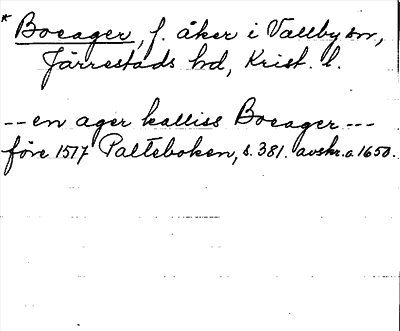 * Boeager, f. åker i Vallby sn,
Järrestads hd, Krist. l.
-- en ager kalliss Boeager ---
före 1517 Palteboken, s. 381. avskr. c. 1650.